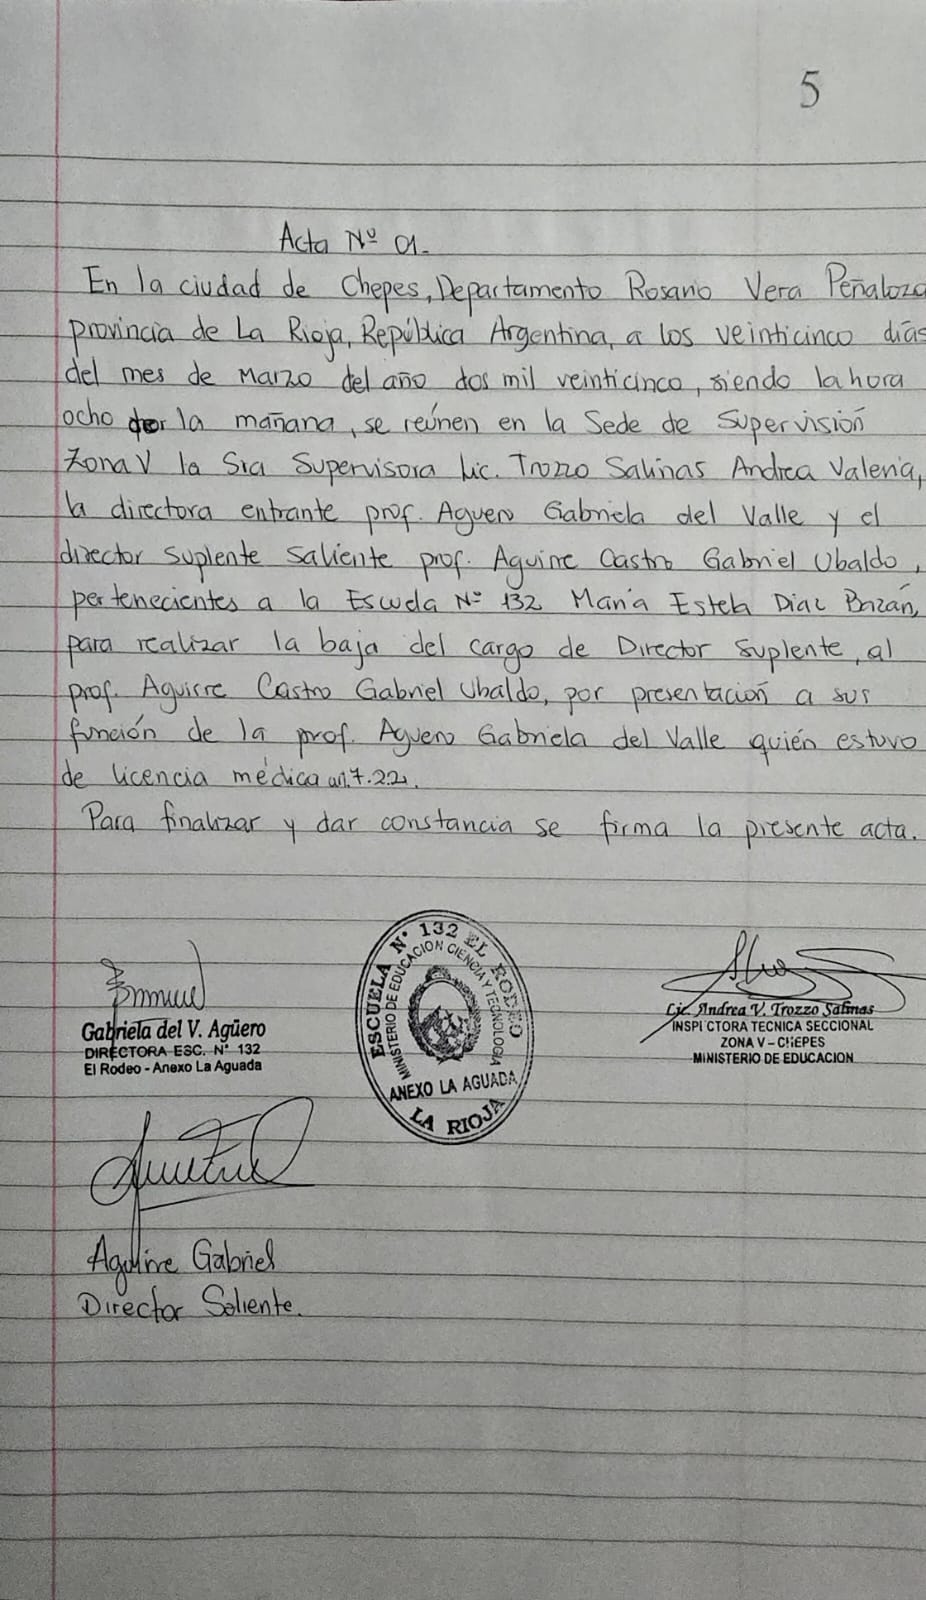 5
Acta Nº 01.
En la ciudad de Chepes, Departamento Rosario Vera Peñaloza
provincia de La Rioja, República Argentina, a los veinticinco días
del mes de Marzo del año dos mil veinticinco, siendo la hora
ocho de la mañana, se reúnen en la Sede de Supervisión
Zona V la Sra Supervisora Lic. Trozzo Salinas Andrea Valeria,
la directora entrante prof. Aguero Gabriela del Valle y el
director suplente saliente prof. Aguirre Castro Gabriel Ubaldo,
pertenecientes a la Escuela Nº 132 María Estela Diaz Bazán,
para realizar la baja del cargo de Director suplente, al
prof. Aguirre Castro Gabriel Ubaldo, por presentación a sus
función de la prof. Aguero Gabriela del Valle quién estuvo
de licencia médica art. 7.2.2.
Para finalizar y dar constancia se firma la presente acta.
Gabriela del V. Agüero
DIRECTORA ESC. Nº 132
El Rodeo - Anexo La Aguada
ESCUELA Nº 132 EL RODEO
MINISTERIO DE EDUCACION CIENCIA Y TECNOLOGIA
ANEXO LA AGUADA
LA RIOJA
Lic. Andrea V. Trozzo Salinas
INSPECTORA TECNICA SECCIONAL
ZONA V - CHEPES
MINISTERIO DE EDUCACION
Aguirre Gabriel
Director Saliente.